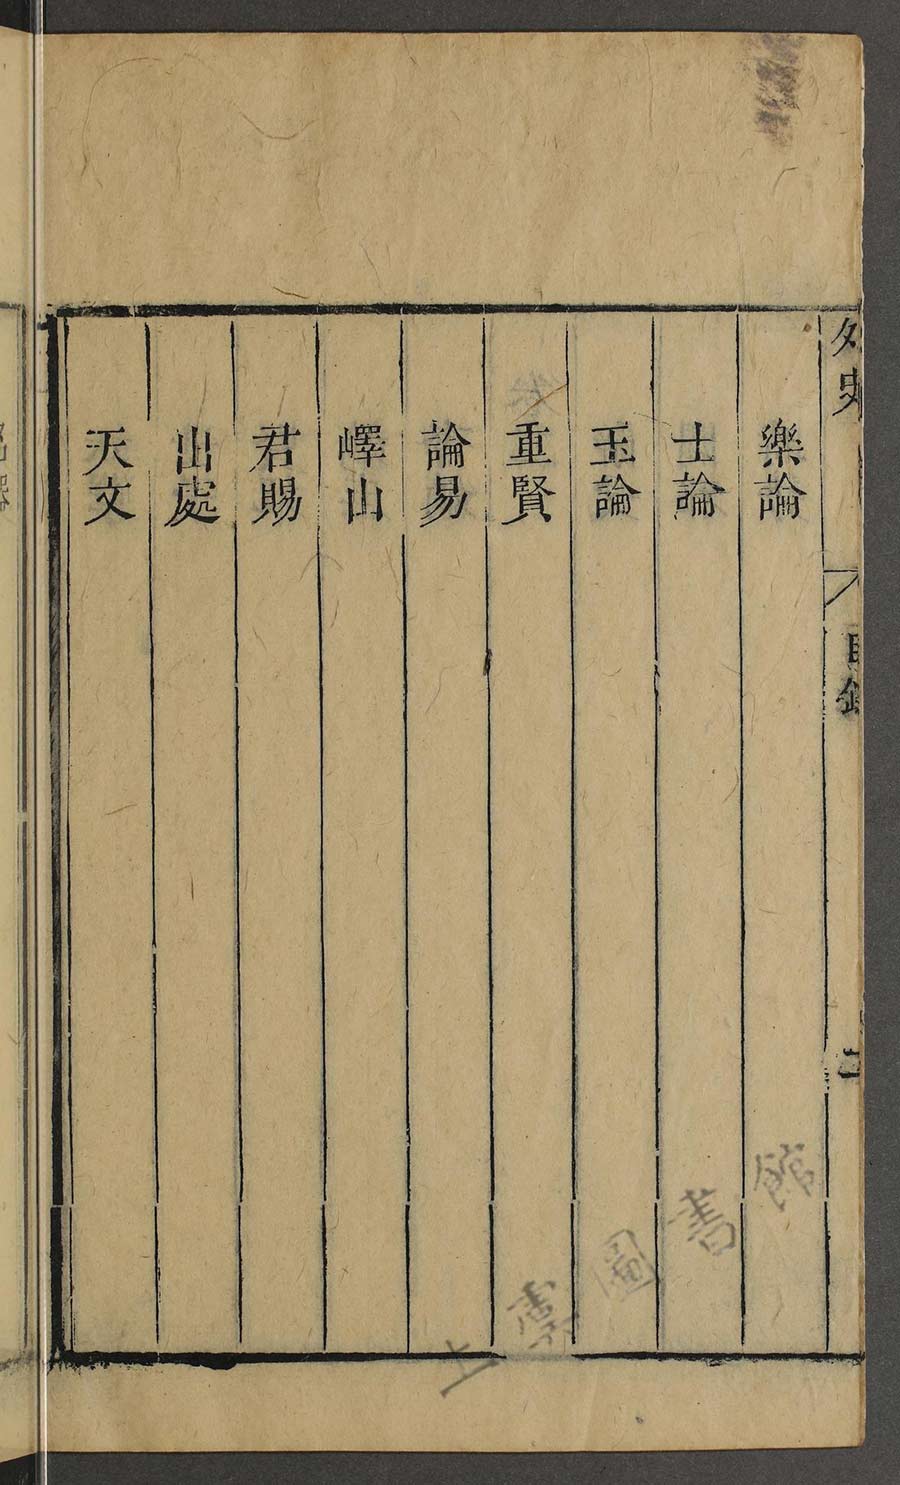 外史
目錄
二
樂論
士論
玉論
重賢
論易
嶧山
君賜
出處
天文
上雲圖書館